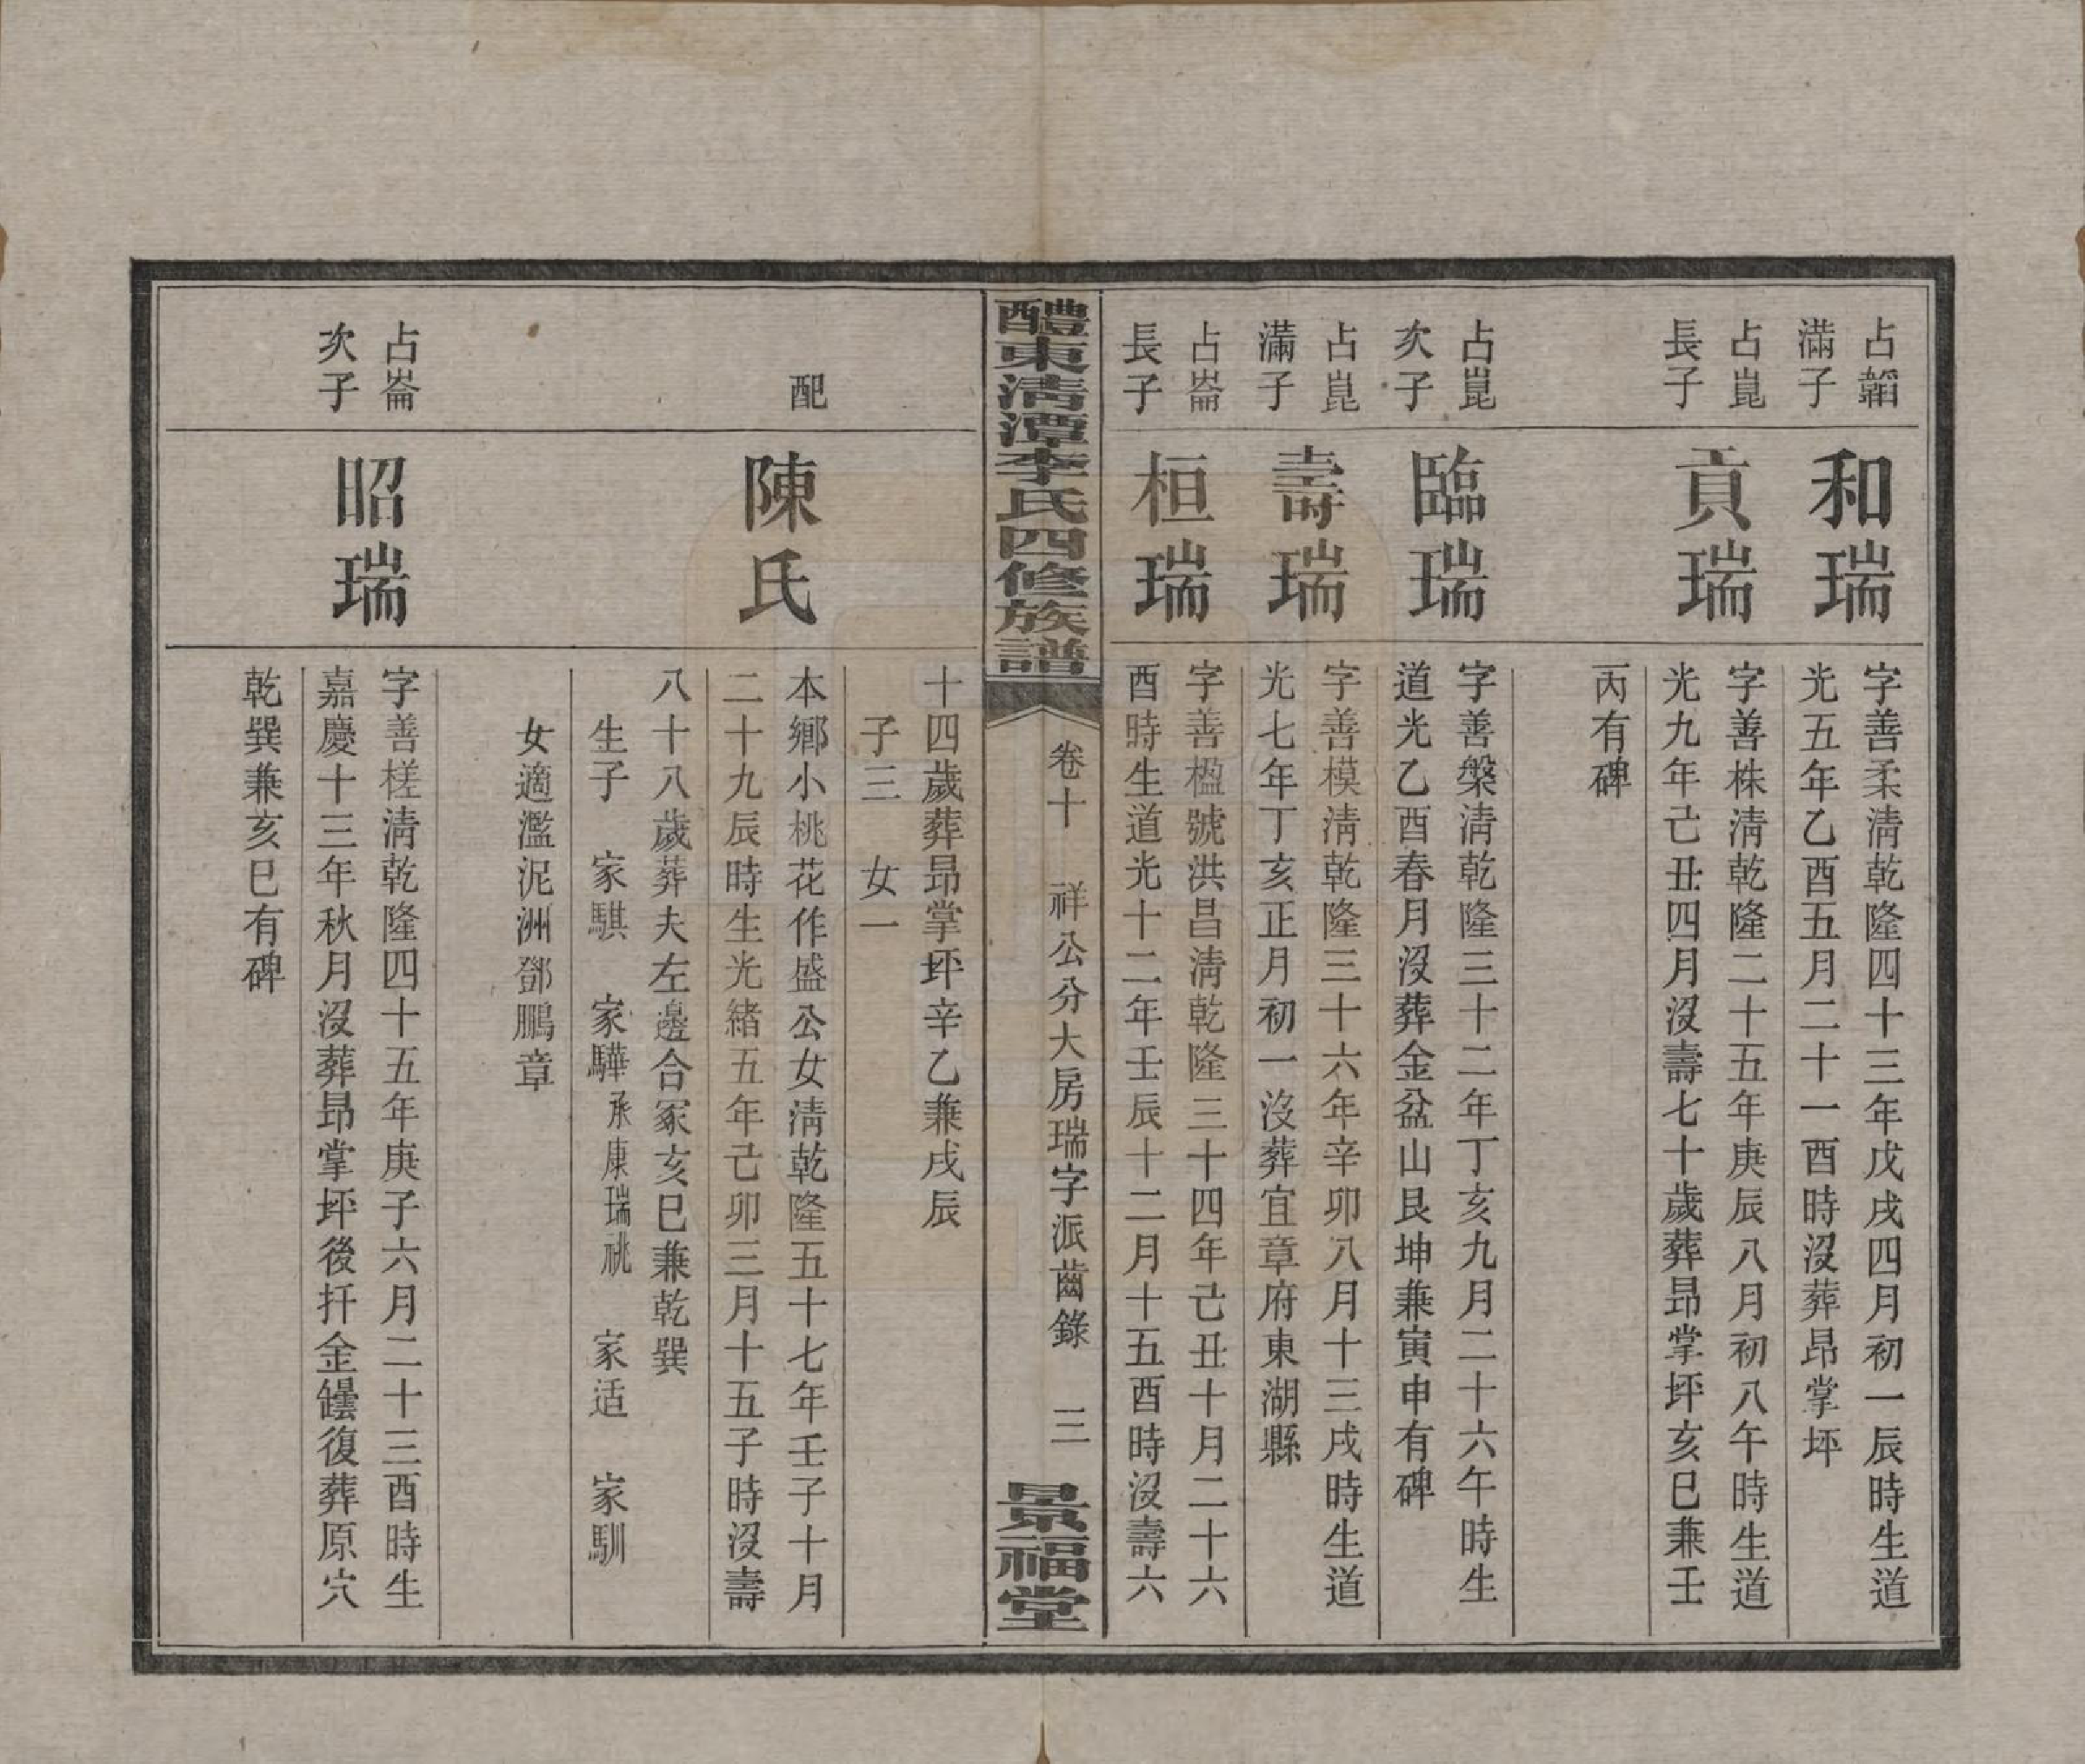 占韜
滿子
和瑞
字善柔淸乾隆四十三年戊戌四月初一辰時生道
光五年乙酉五月二十一酉時沒葬昻掌坪
占崑
長子
貢瑞
字善株淸乾隆二十五年庚辰八月初八午時生道
光九年己丑四月沒壽七十歲葬昻掌坪亥巳兼壬
丙有碑
占崑
次子
臨瑞
字善槃淸乾隆三十二年丁亥九月二十六午時生
道光乙酉春月沒葬金盆山艮坤兼寅申有碑
占崑
滿子
壽瑞
字善模淸乾隆三十六年辛卯八月十三戌時生道
光七年丁亥正月初一沒葬宜章府東湖縣
占崙
長子
桓瑞
字善楹號洪昌淸乾隆三十四年己丑十月二十六
酉時生道光十二年壬辰十二月十五酉時沒壽六
醴東淸潭李氏四修族譜
卷十 祥公分大房瑞字派齒錄 三
景福堂
十四歲葬昻掌坪辛乙兼戌辰
子三 女一
配
陳氏
本鄉小桃花作盛公女淸乾隆五十七年壬子十月
二十九辰時生光緒五年己卯三月十五子時沒壽
八十八歲葬夫左邊合冢亥巳兼乾巽
生子 家騏 家驊承康瑞祧 家适 家馴
女適濫泥洲鄧鵬章
占崙
次子
昭瑞
字善槎淸乾隆四十五年庚子六月二十三酉時生
嘉慶十三年秋月沒葬昻掌坪後扦金罎復葬原穴
乾巽兼亥巳有碑